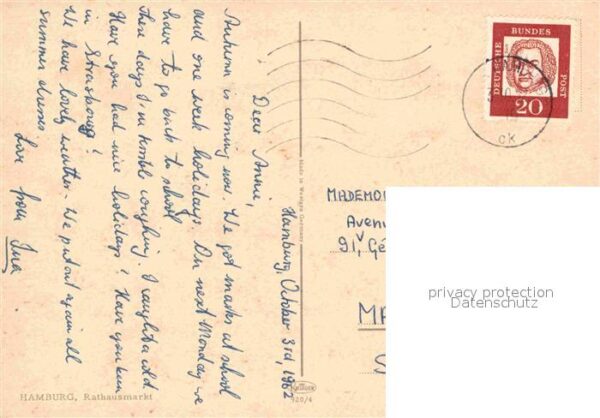 Hamburg, October 3rd, 1962
Dear Annie,
Autumn is coming now. We got marks at school
and one week holidays. On next Monday we
have to go back to school.
These days I'm horrible coughing. I caught a cold.
Have you had nice holidays? Have you been
in Strasbourg?
We have lovely weather. We put on again all
summer dresses
Love from Ina
HAMBURG, Rathausmarkt
Made in Western Germany
920/4
DEUTSCHE BUNDES POST
20
ck
MADEMOI
Avenu
91, Gé
MA
privacy protection
Datenschutz